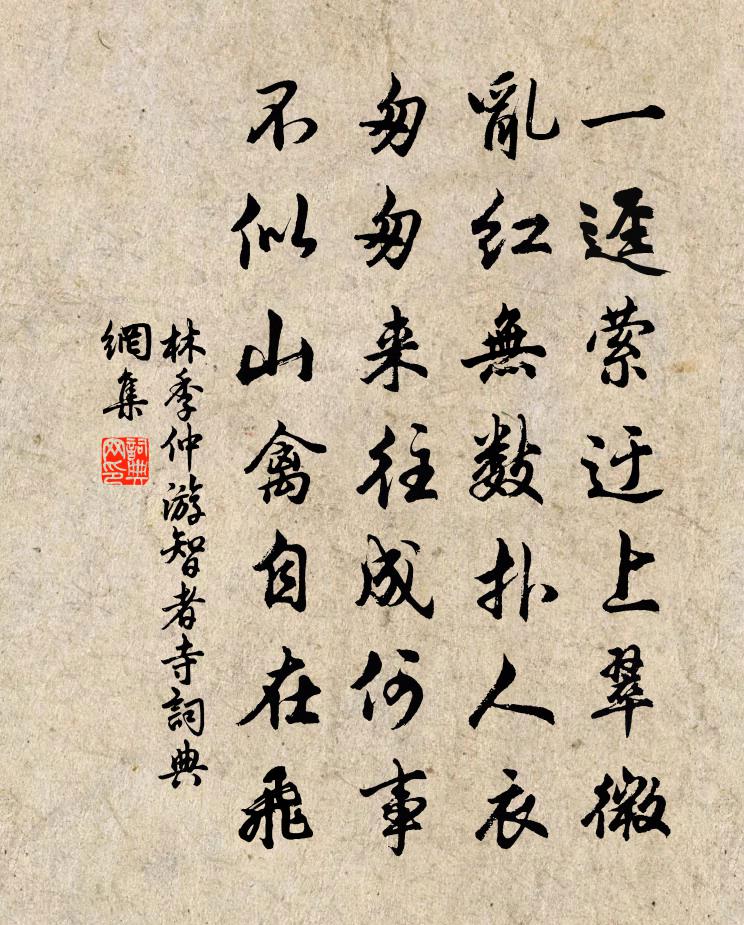 一逕萦迂上翠微
亂红無数扑人衣
匆匆来往成何事
不似山禽自在飛
林季仲游智者寺詞典
網集
詞典
网印